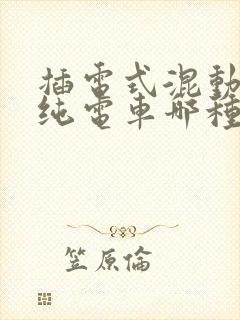 插電式混動
纯電車哪種
笠原倫